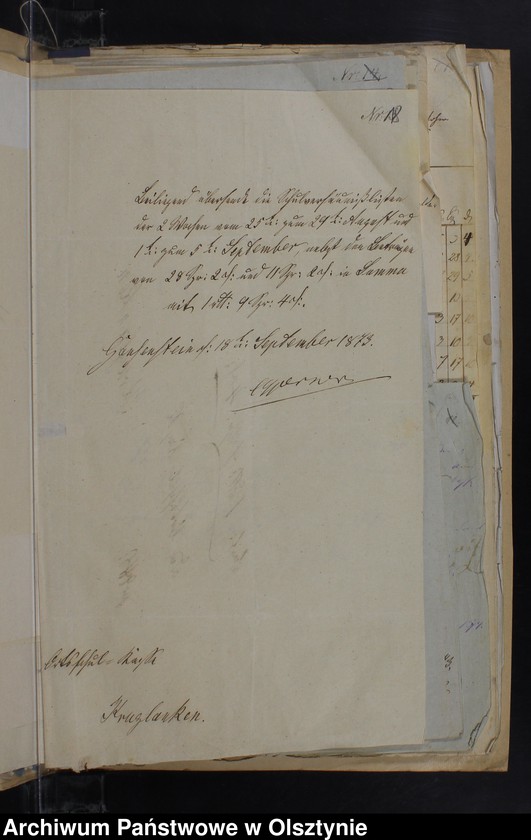 Nr: 14
Nr 18
Beiliegend übersende die Schulversäumnißlisten
der 2 Wochen vom 25 t: zum 29 t: August und
1 t: zum 5 t: September, nebst den Beträgen
von 28 Gr: 2 ₰: und 11 Gr: 2 ₰: in Summa
mit 1 rtl: 9 Gr: 4 ₰.
18 t: September 1873.
Ortsschul-Kasse
Kruglanken.
Archiwum Państwowe w Olsztynie